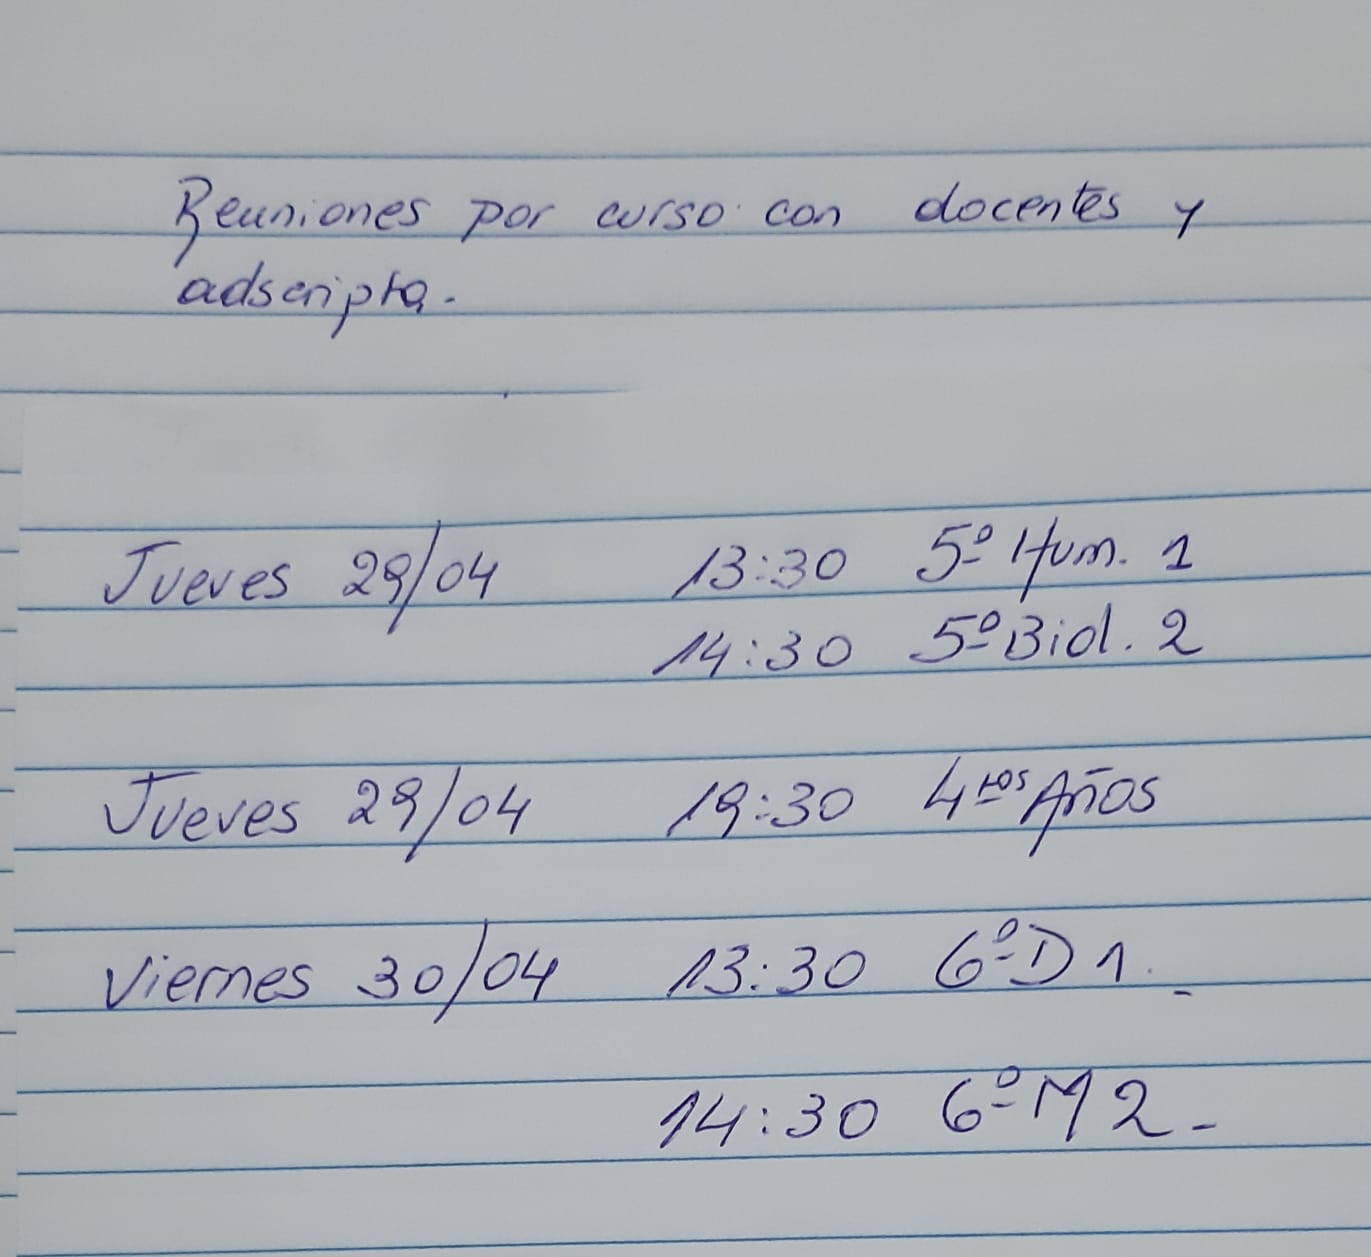 Reuniones por curso con docentes y
adscripta.
Jueves 29/04 13:30 5º Hum. 1
14:30 5º Biol. 2
Jueves 29/04 19:30 4tos Años
Viernes 30/04 13:30 6º D 1.
14:30 6º M 2.